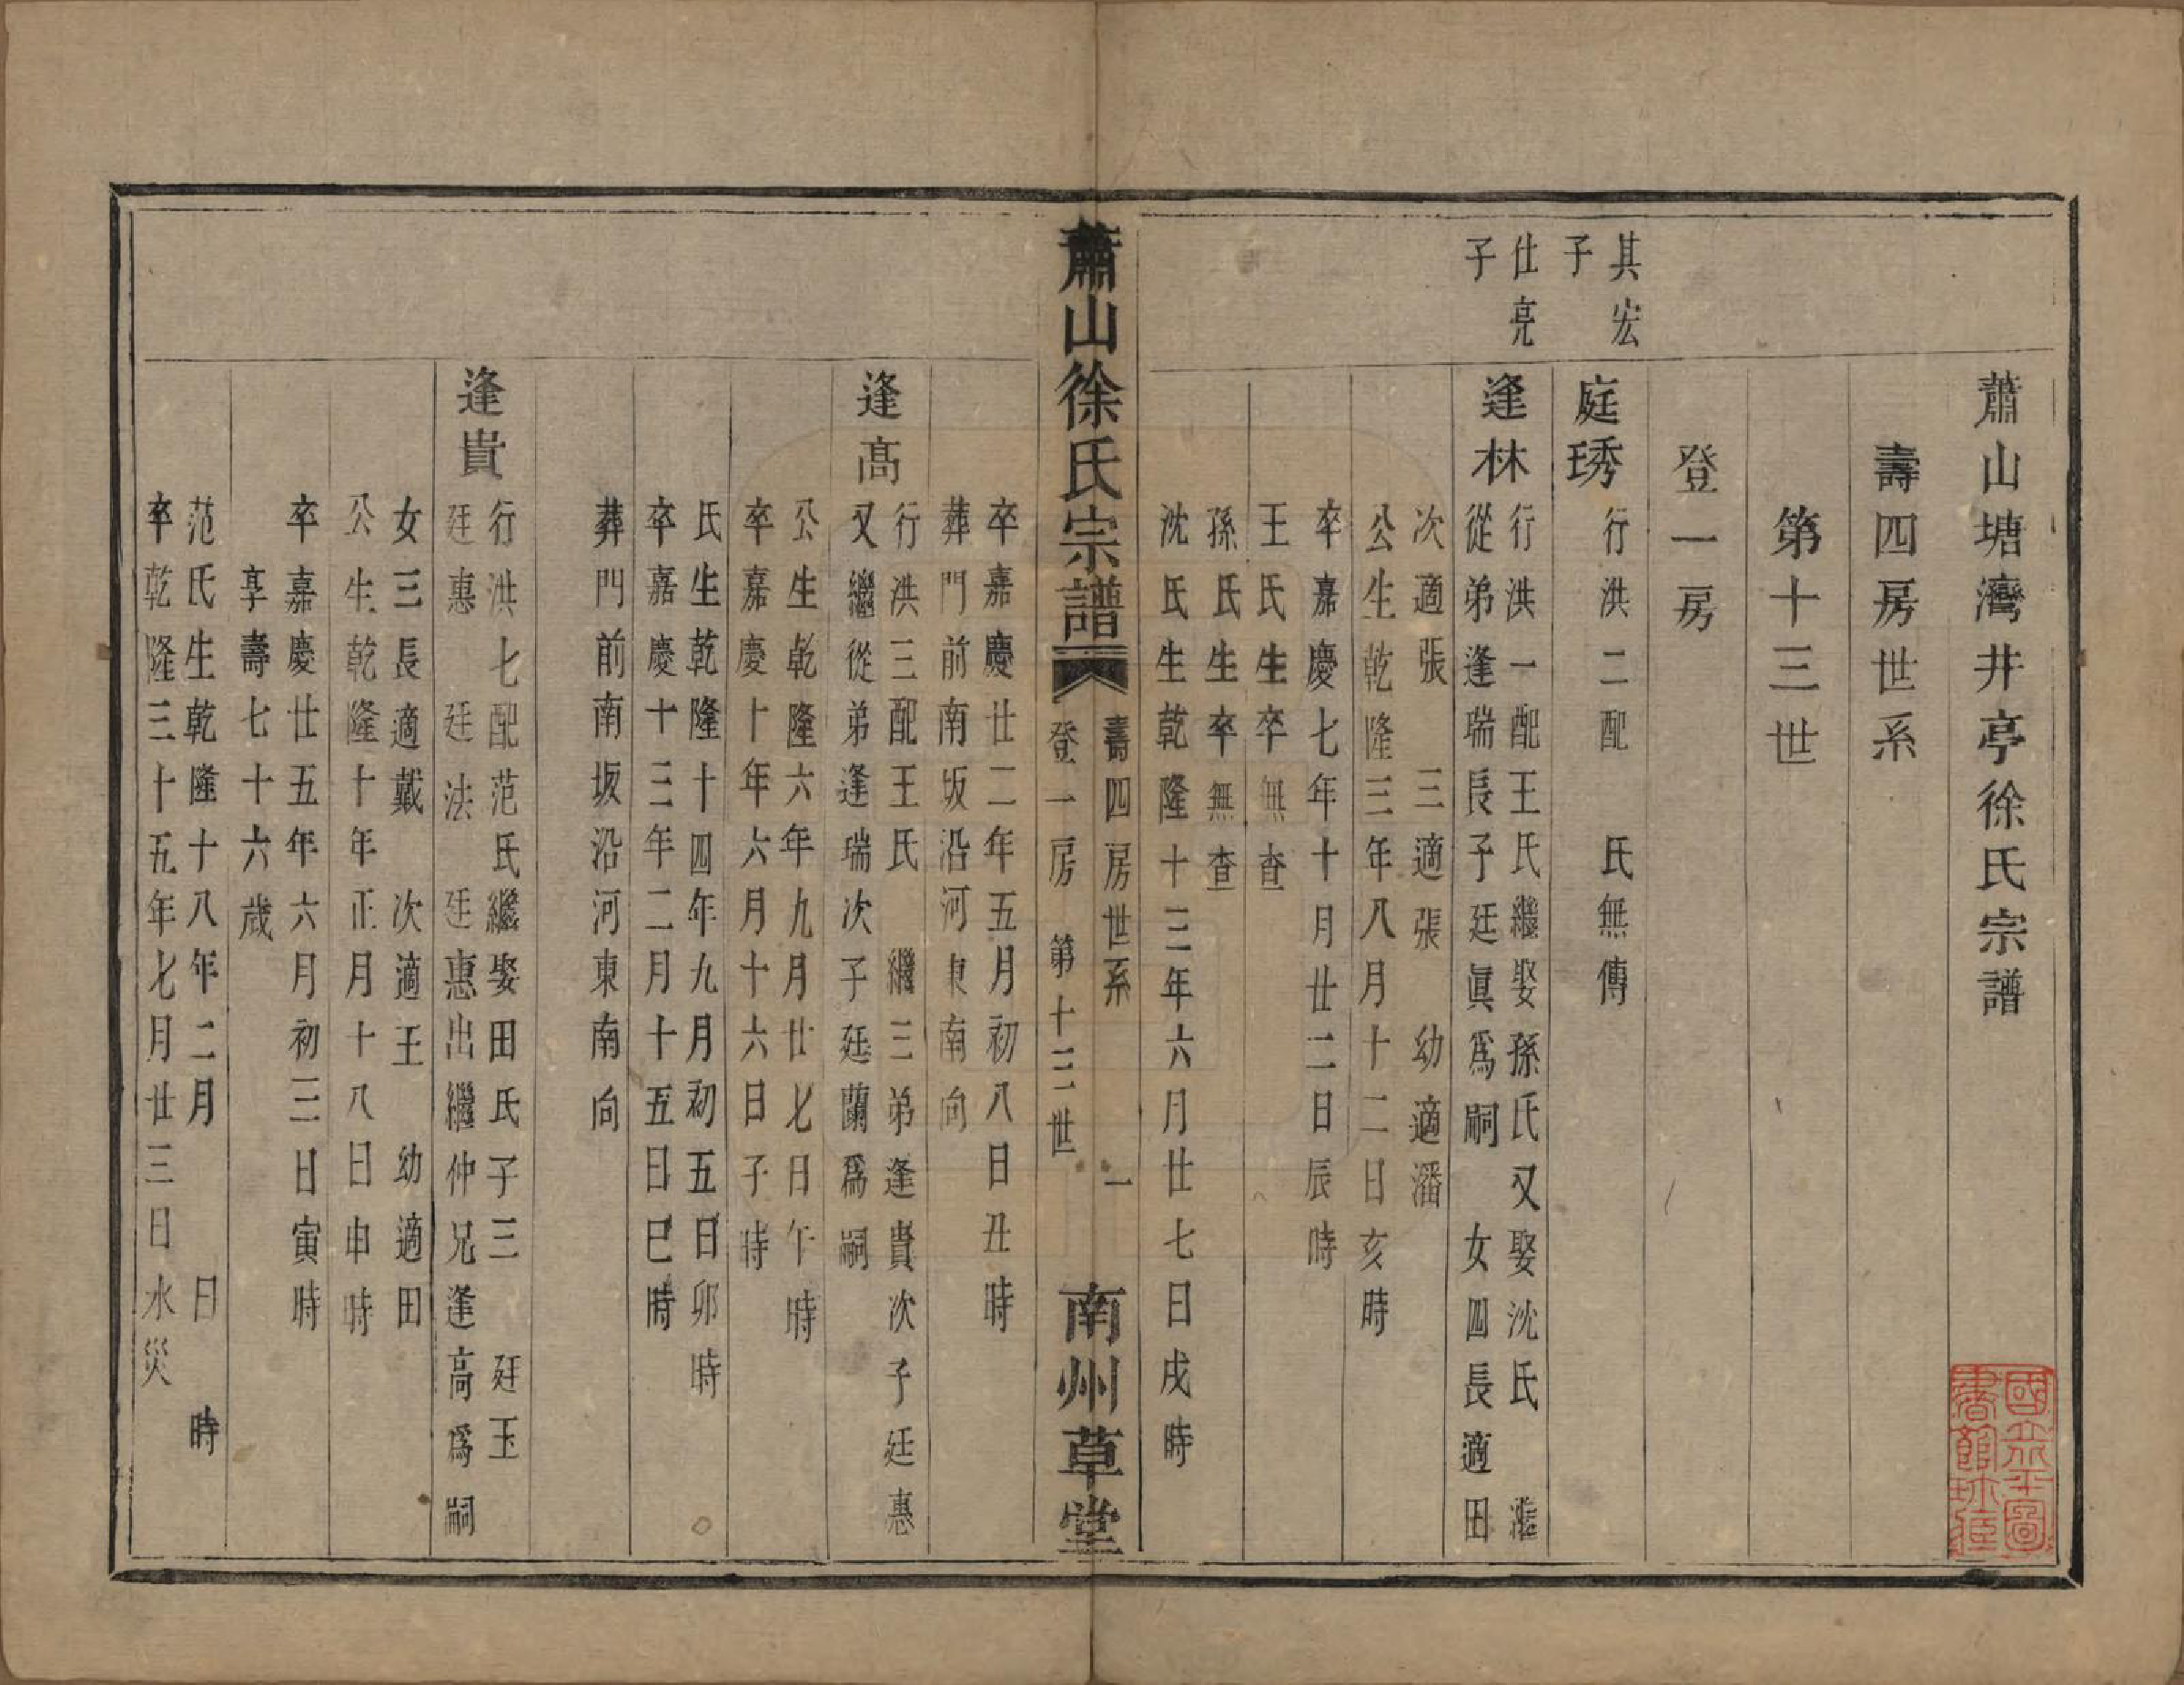 蕭山塘灣井亭徐氏宗譜
壽四房世系
第十三世
登一房
其宏子
庭琇
行洪二配　氏無傳
仕亮子
逢林
行洪一配王氏繼娶孫氏又娶沈氏　繼
從弟逢瑞長子廷眞爲嗣　女四長適田
次適張　三適張　幼適潘
公生乾隆三年八月十二日亥時
卒嘉慶七年十月廿二日辰時
王氏生卒無查
孫氏生卒無查
沈氏生乾隆十三年六月廿七日戌時
蕭山徐氏宗譜
壽四房世系　一
登一房　第十三世
南州草堂
卒嘉慶廿二年五月初八日丑時
葬門前南坂沿河東南向
逢高
行洪三配王氏　繼三弟逢貴次子廷惠
又繼從弟逢瑞次子廷蘭爲嗣
公生乾隆六年九月廿七日午時
卒嘉慶十年六月十六日子時
氏生乾隆十四年九月初五日卯時
卒嘉慶十三年二月十五日巳時
葬門前南坂沿河東南向
逢貴
行洪七配范氏繼娶田氏子三　廷玉
廷惠　廷法　廷惠出繼仲兄逢高爲嗣
女三長適戴　次適王　幼適田
公生乾隆十年正月十八日申時
卒嘉慶廿五年六月初三日寅時
享壽七十六歲
范氏生乾隆十八年二月　日　時
卒乾隆三十五年七月廿三日水災
國立北平圖
書館珍藏